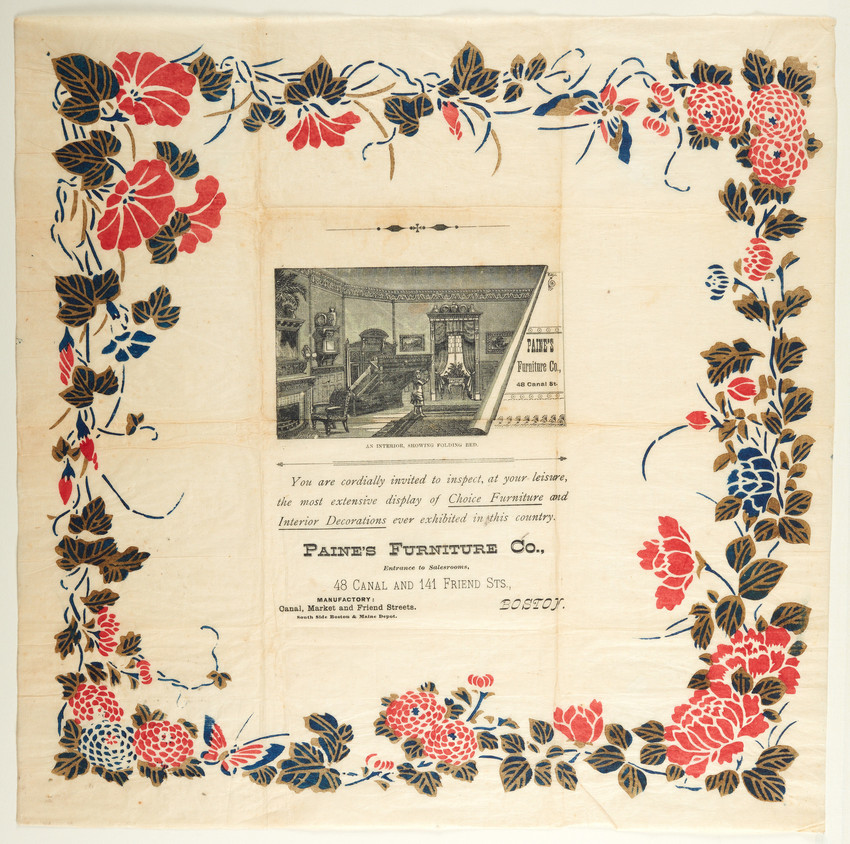 PAINE'S
Furniture Co.,
48 Canal St.
AN INTERIOR, SHOWING FOLDING BED.
You are cordially invited to inspect, at your leisure,
the most extensive display of Choice Furniture and
Interior Decorations ever exhibited in this country.
PAINE'S FURNITURE CO.,
Entrance to Salesrooms,
48 CANAL AND 141 FRIEND STS.,
MANUFACTORY:
Canal, Market and Friend Streets.
BOSTON.
South Side Boston & Maine Depot.